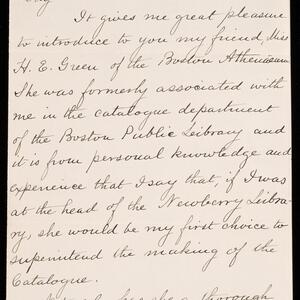 It gives me great pleasure
to introduce to you my friend, Miss
H. E. Green of the Boston Athenaeum
She was formerly associated with
me in the catalogue department
of the Boston Public Library and
it is from personal knowledge and
experience that I say that, if I was
at the head of the Newberry Libra-
ry, she would be my first choice to
superintend the making of the
Catalogue.
thorough